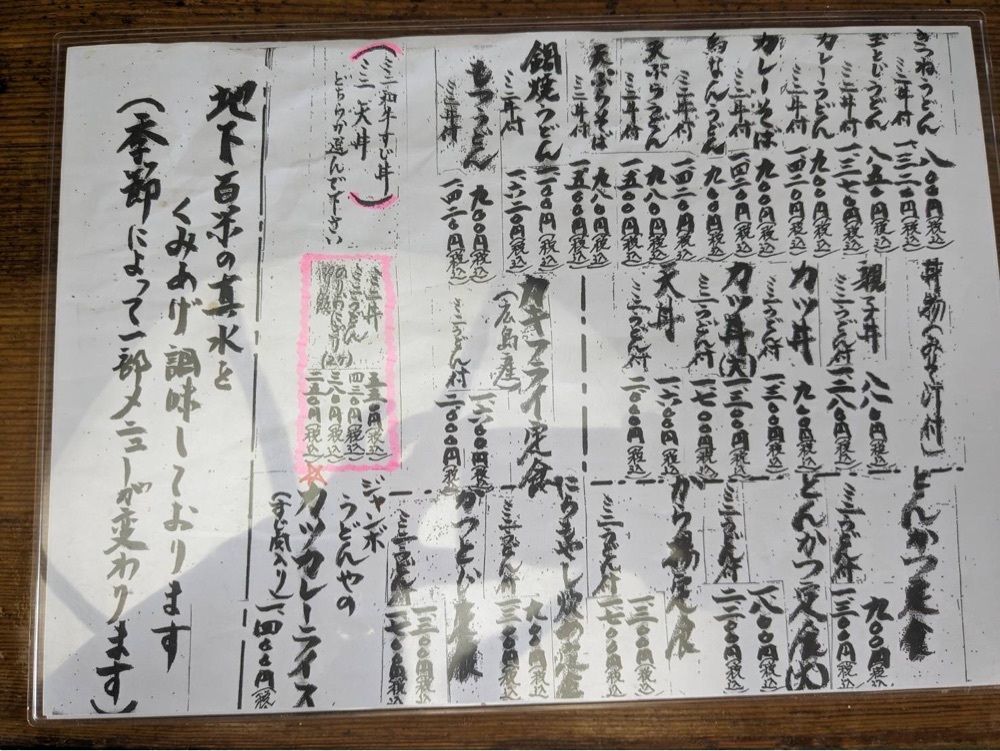 きつねうどん 八〇〇円(税込)
ミニ丼付 一、三二〇円(税込)
玉とじうどん 八五〇円(税込)
ミニ丼付 一、三七〇円(税込)
カレーうどん 九〇〇円(税込)
ミニ丼付 一、四二〇円(税込)
カレーそば 九〇〇円(税込)
ミニ丼付 一、四二〇円(税込)
鳥なんうどん 九〇〇円(税込)
ミニ丼付 一、四二〇円(税込)
天ぷらうどん 九八〇円(税込)
ミニ丼付 一、五〇〇円(税込)
天ぷらそば 九八〇円(税込)
ミニ丼付 一、五〇〇円(税込)
鍋焼うどん 一、一〇〇円(税込)
ミニ丼付 一、六二〇円(税込)
もつうどん 九〇〇円(税込)
ミニ丼付 一、四二〇円(税込)
(ミニ和牛すじ丼
ミニ天丼)
どちらか選んで下さい
丼物(みそ汁付)
親子丼 八八〇円(税込)
ミニうどん付 一、二八〇円(税込)
カツ丼 九〇〇円(税込)
ミニうどん付 一、三〇〇円(税込)
カツ丼(大) 一、三〇〇円(税込)
ミニうどん付 一、七〇〇円(税込)
天丼 一、六〇〇円(税込)
ミニうどん付 二、〇〇〇円(税込)
カキフライ定食
(広島産) 一、六〇〇円(税込)
ミニうどん付 二、〇〇〇円(税込)
ミニ丼 五五〇円(税込)
ミニうどん 四三〇円(税込)
のりまきにぎり(2ケ) 三八〇円(税込)
二五〇円(税込)
とんかつ定食 九〇〇円(税込)
ミニうどん付 一、三〇〇円(税込)
とんかつ定食(大) 一、八〇〇円(税込)
ミニうどん付 二、二〇〇円(税込)
から揚定食 一、三〇〇円(税込)
ミニうどん付 一、七〇〇円(税込)
にらもやし炒め定食 九〇〇円(税込)
ミニうどん付 一、三〇〇円(税込)
かつとじ定食 一、三〇〇円(税込)
ミニうどん付 一、七〇〇円(税込)
ジャンボ
うどんやの
☆カツカレーライス
(すじ肉入り) 一、四〇〇円(税込)
地下百米の真水を
くみあげ調味しております
(季節によって一部メニューが変わります)